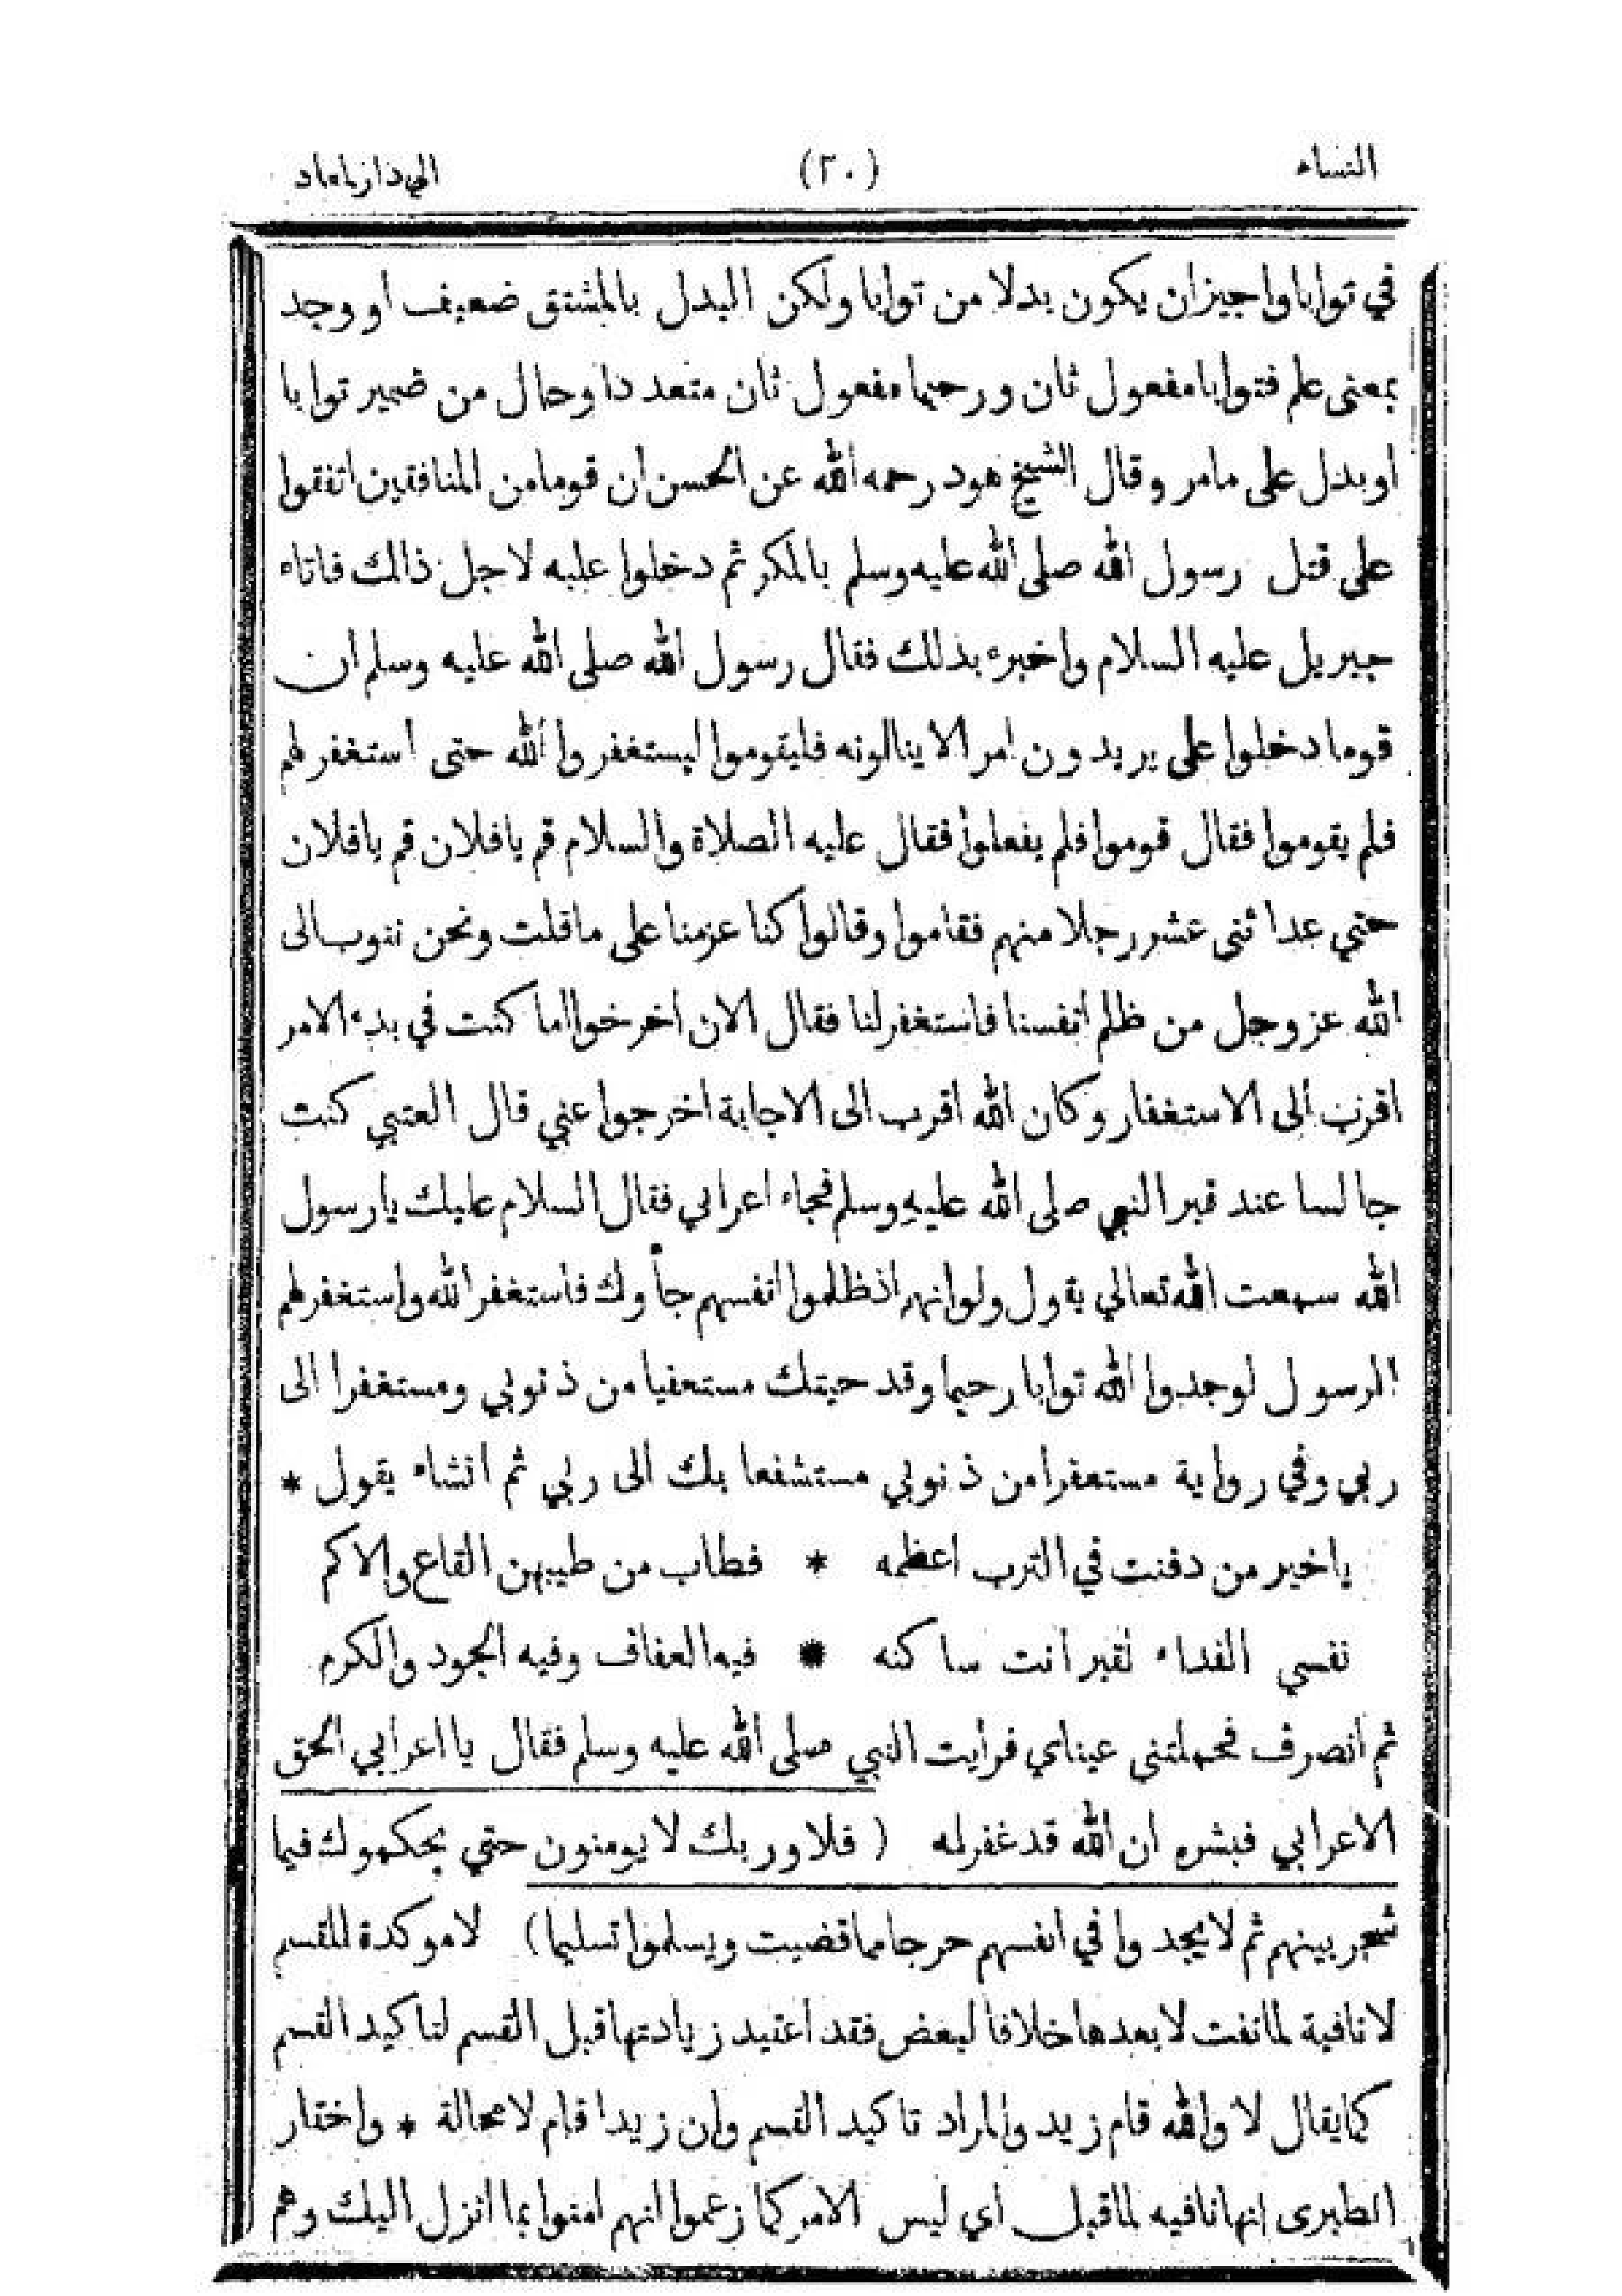 النساء (٣٠) الى دار المعاد
في توابا واجيزان يكون بدلا من توابا ولكن البدل بالمشتق ضعيف او وجد
بمعنى علم فتوابا مفعول ثان ورحيما مفعول ثان متعدد او حال من ضمير توابا
او بدل على مامر وقال الشيخ هود رحمه الله عن الحسن ان قوما من المنافقين اتفقوا
على قتل رسول الله صلى الله عليه وسلم بالمكر ثم دخلوا عليه لاجل ذالك فاتاه
جبريل عليه السلام واخبره بذلك فقال رسول الله صلى الله عليه وسلم ان
قوما دخلوا على يريدون امر الا ينالونه فليقوموا ليستغفروا الله حتى استغفر لهم
فلم يقوموا فقال قوموا فلم يفعلوا فقال عليه الصلاة والسلام قم يا فلان قم يا فلان
حتي عد اثنى عشر رجلا منهم فقاموا وقالوا كنا عزمنا على ما قلت ونحن نتوب الى
الله عز وجل من ظلم انفسنا فاستغفر لنا فقال الان اخرخوا اما كنت في بدء الامر
اقرب الى الاستغفار وكان الله اقرب الى الاجابة اخرجوا عني قال العتبي كنت
جالسا عند قبر النبي صلى الله عليه وسلم فجاء اعرابي فقال السلام عليك يا رسول
الله سمعت الله تعالي يقول ولو انهم اذ ظلموا انفسهم جاؤك فاستغفر الله واستغفر لهم
الرسول لوجدوا الله توابا رحيما وقد حيتك مستعفيا من ذنوبي ومستغفرا الى
ربي وفي رواية مستعفرا من ذنوبي مستشفعا بك الى ربي ثم انشاء يقول *
يا خير من دفنت في الترب اعظمه * فطاب من طيبهن القاع والاكم
نفسي الفداء لقبر انت ساكنه * فيه العفاف وفيه الجود والكرم
ثم انصرف فحملتنى عيناي فرأيت النبي صلى الله عليه وسلم فقال يا اعرابي الحق
الاعرابي فبشره ان الله قد غفر له ( فلا وربك لا يومنون حتي يحكموك فيما
شجر بينهم ثم لا يجدوا في انفسهم حرجا مما قضيت ويسلموا تسليما) لا موكدة للقسم
لا نافية لما نفت لا بعدها خلافا لبعض فقد اعتيد زيادتها قبل القسم لتاكيد القسم
كما يقال لا والله قام زيد والمراد تاكيد القسم وان زيدا قام لا محالة * واختار
الطبرى انها نافيه لما قبل اي ليس الامر كما زعموا انهم امنوا بما انزل اليك وهم